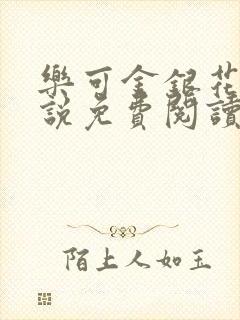 樂可金銀花
說免費閱讀
陌上人如玉